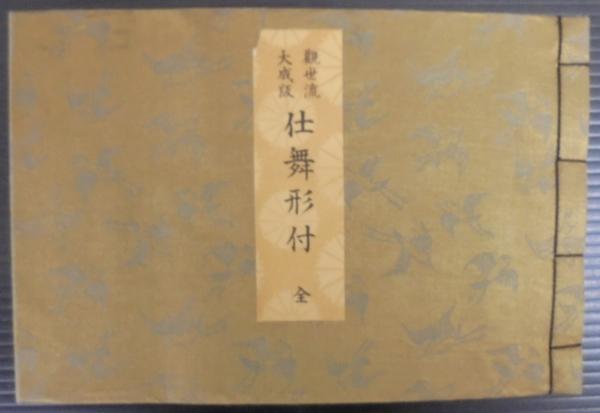 觀世流
大成版
仕舞形付 全